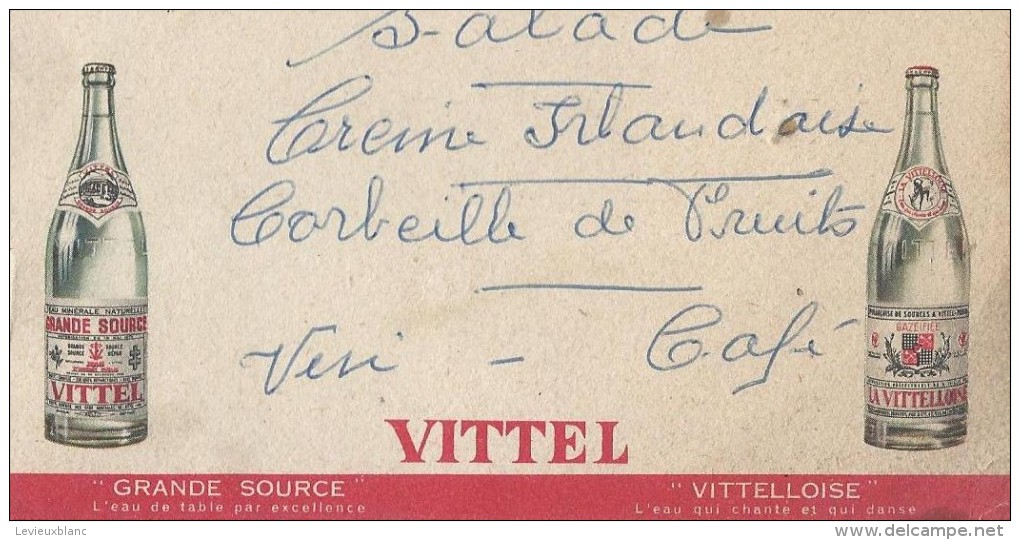 Salade
Creme Irlandaise
Corbeille de Fruits
Vin - Café
VITTEL
EAU MINÉRALE NATURELLE
GRANDE SOURCE
VITTEL
LA VITTELLOISE
GAZEIFIÉE
LA VITTELLOISE
" GRANDE SOURCE "
L'eau de table par excellence
" VITTELLOISE "
L'eau qui chante et qui danse
Levieuxblanc
delcampe.net